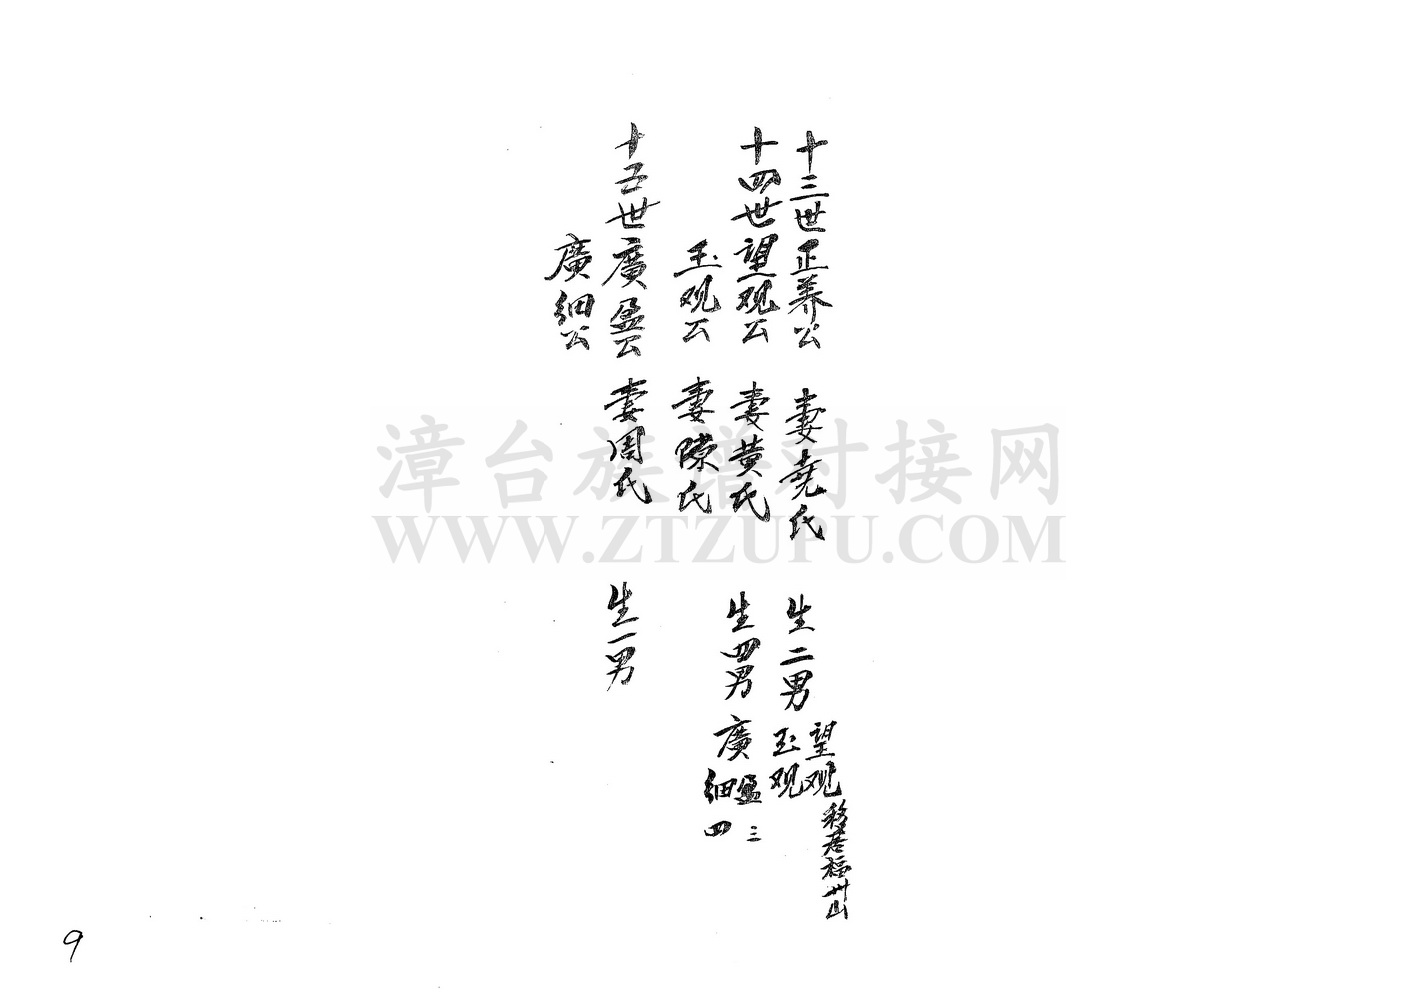 十三世正养公 妻尭氏 生二男 望观 玉观
移居福卅山
十四世望观公 妻黄氏 生四男 廣盈 細 三 四
玉观公 妻陳氏
十五世廣盈公 妻周氏 生一男
廣細公
漳台族谱对接网
WWW.ZTZUPU.COM
9